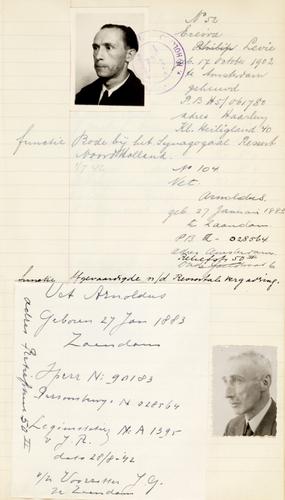 No 52
Levie
geb. 17 October 1902
te Amsterdam
gehuwd
P.B H51/061780
adres Haarlem
Kl. Heiligland 40
functie Bode bij het Synagogaal Ressort
Noord Holland.
No 104
Vet.
Arnoldus.
geb 27 Januari 1883
te Zaandam
P.B III - 028564
adres Amsterdam
50 III
functie Afgevaardigde n/d Ressortale vergadering.
Vet Arnoldus
Geboren 27 Jan 1883
Zaandam
Sperr No 90183
Persoonsbew. N 028564
Legimitatie N: A 1395
v J.R.
dato 28/8-'42
v/h Voorzitter J G.
te Zaandam
adres
50 II